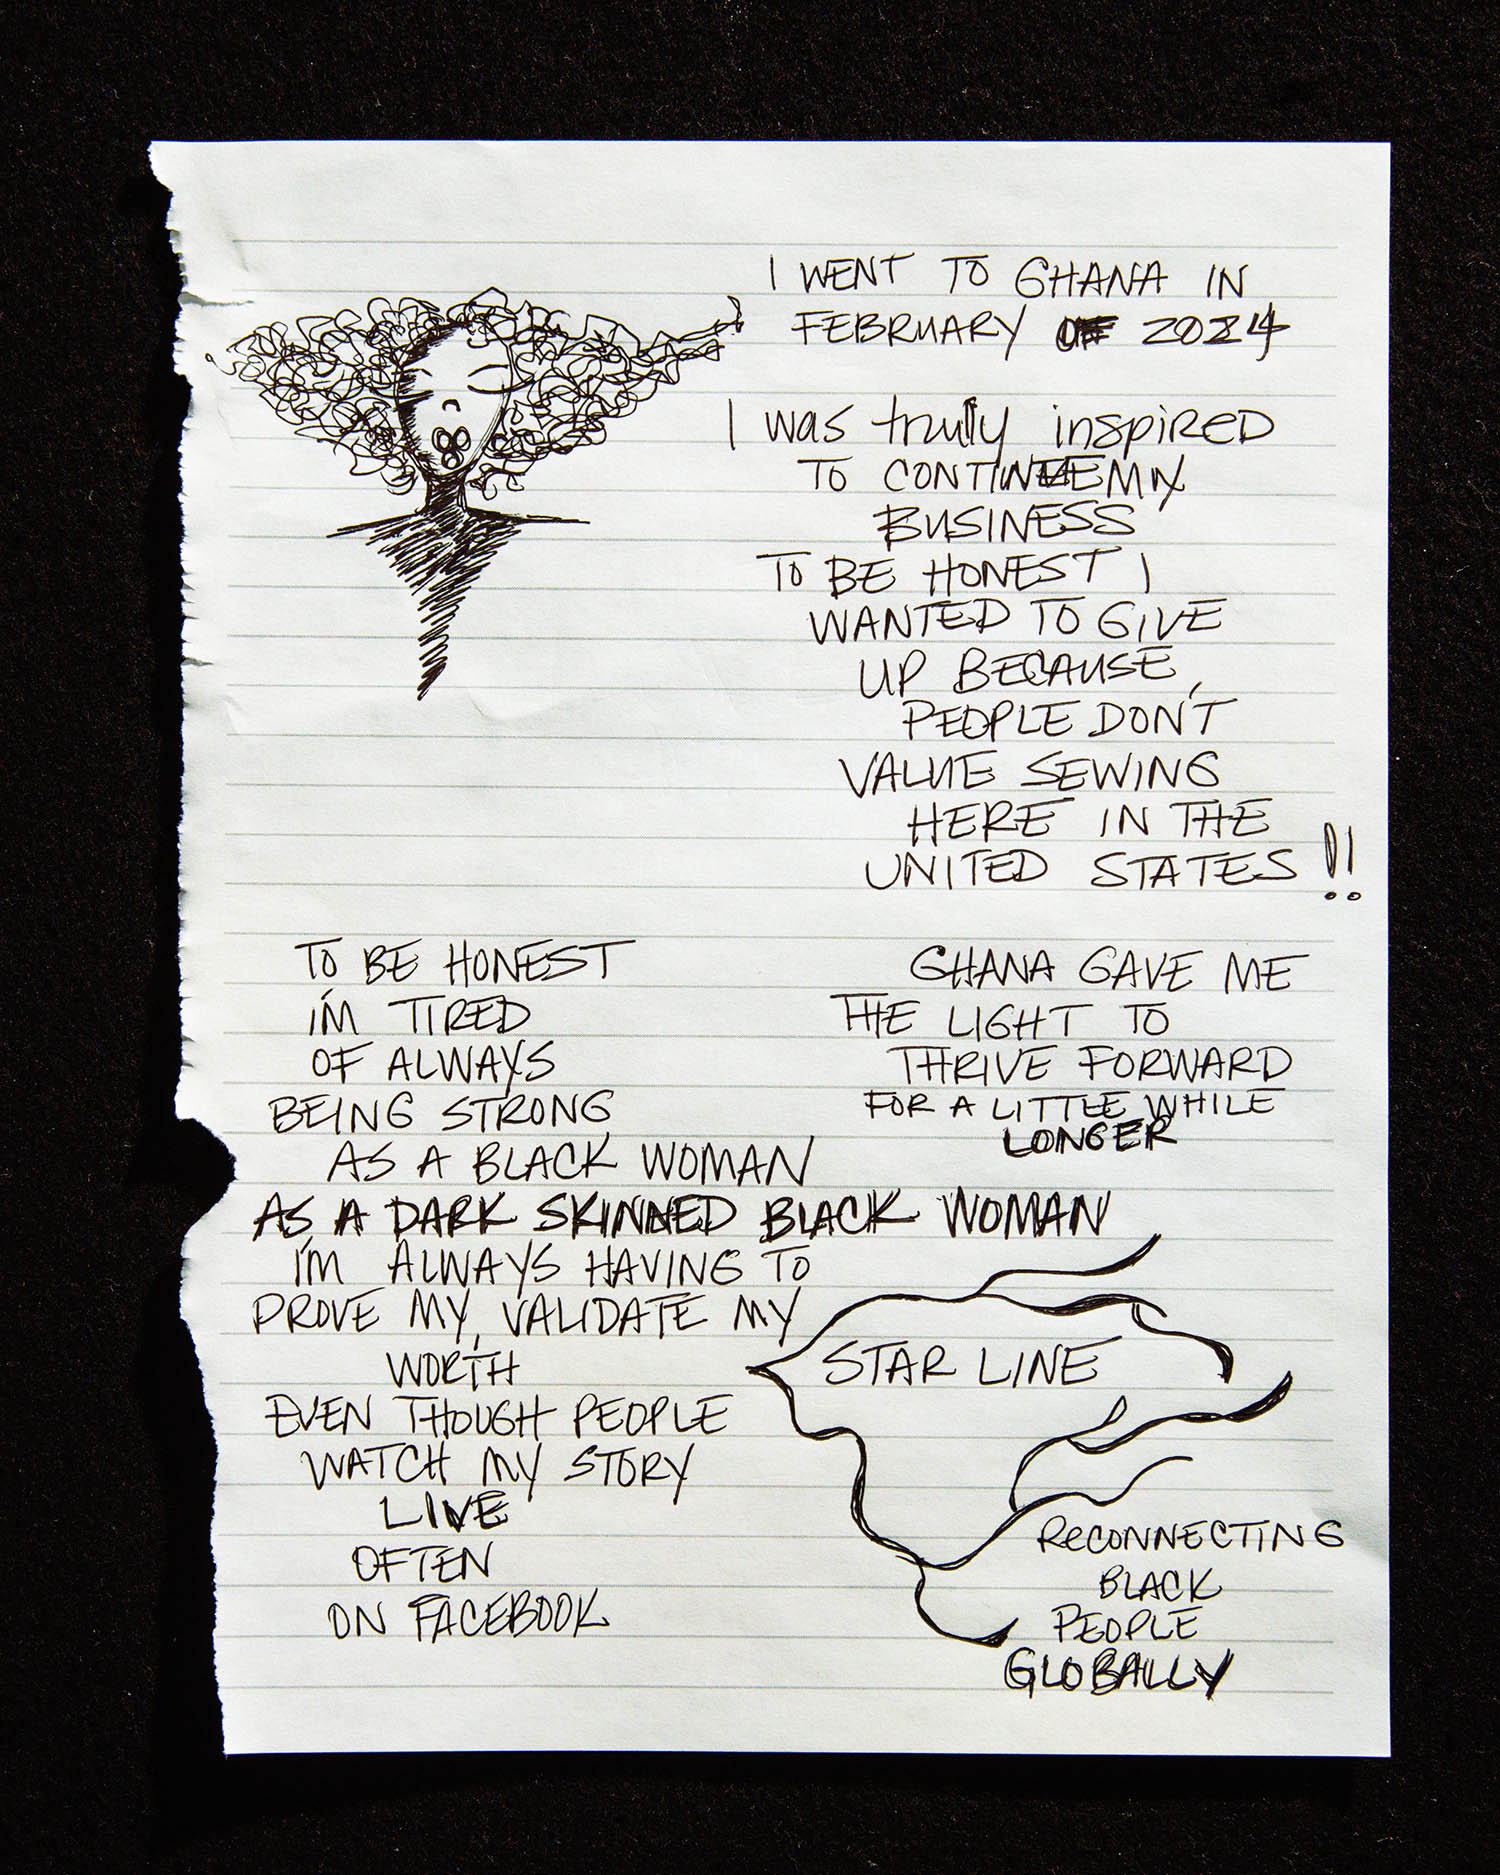 I WENT TO GHANA IN
FEBRUARY OF 2024
I was truly inspired
TO CONTINUE MY
BUSINESS
TO BE HONEST I
WANTED TO GIVE
UP BECAUSE
PEOPLE DON'T
VALUE SEWING
HERE IN THE
UNITED STATES !!
GHANA GAVE ME
THE LIGHT TO
THRIVE FORWARD
FOR A LITTLE WHILE
LONGER
TO BE HONEST
I'M TIRED
OF ALWAYS
BEING STRONG
AS A BLACK WOMAN
AS A DARK SKINNED BLACK WOMAN
I'M ALWAYS HAVING TO
PROVE MY, VALIDATE MY
WORTH
EVEN THOUGH PEOPLE
WATCH MY STORY
LIVE
OFTEN
ON FACEBOOK
STAR LINE
RECONNECTING
BLACK
PEOPLE
GLOBALLY